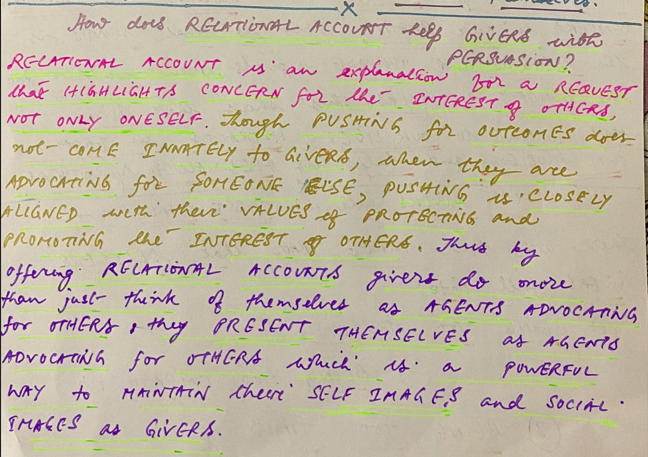 themselves.
x
How does RELATIONAL ACCOUNT help GIVERS with
PERSUASION?
RELATIONAL ACCOUNT is an explanation for a REQUEST
that HIGHLIGHTS CONCERN for the INTEREST of OTHERS,
NOT ONLY ONESELF. Though PUSHING for OUTCOMES does
not COME INNATELY to GIVERS, when they are
ADVOCATING for SOMEONE ELSE, PUSHING is CLOSELY
ALIGNED with their VALUES of PROTECTING and
PROMOTING the INTEREST of OTHERS. Thus by
offering RELATIONAL ACCOUNTS givers do more
than just think of themselves as AGENTS ADVOCATING
for OTHERS, they PRESENT THEMSELVES as AGENTS
ADVOCATING for OTHERS which is a POWERFUL
WAY to MAINTAIN their SELF IMAGES and SOCIAL
IMAGES as GIVERS.